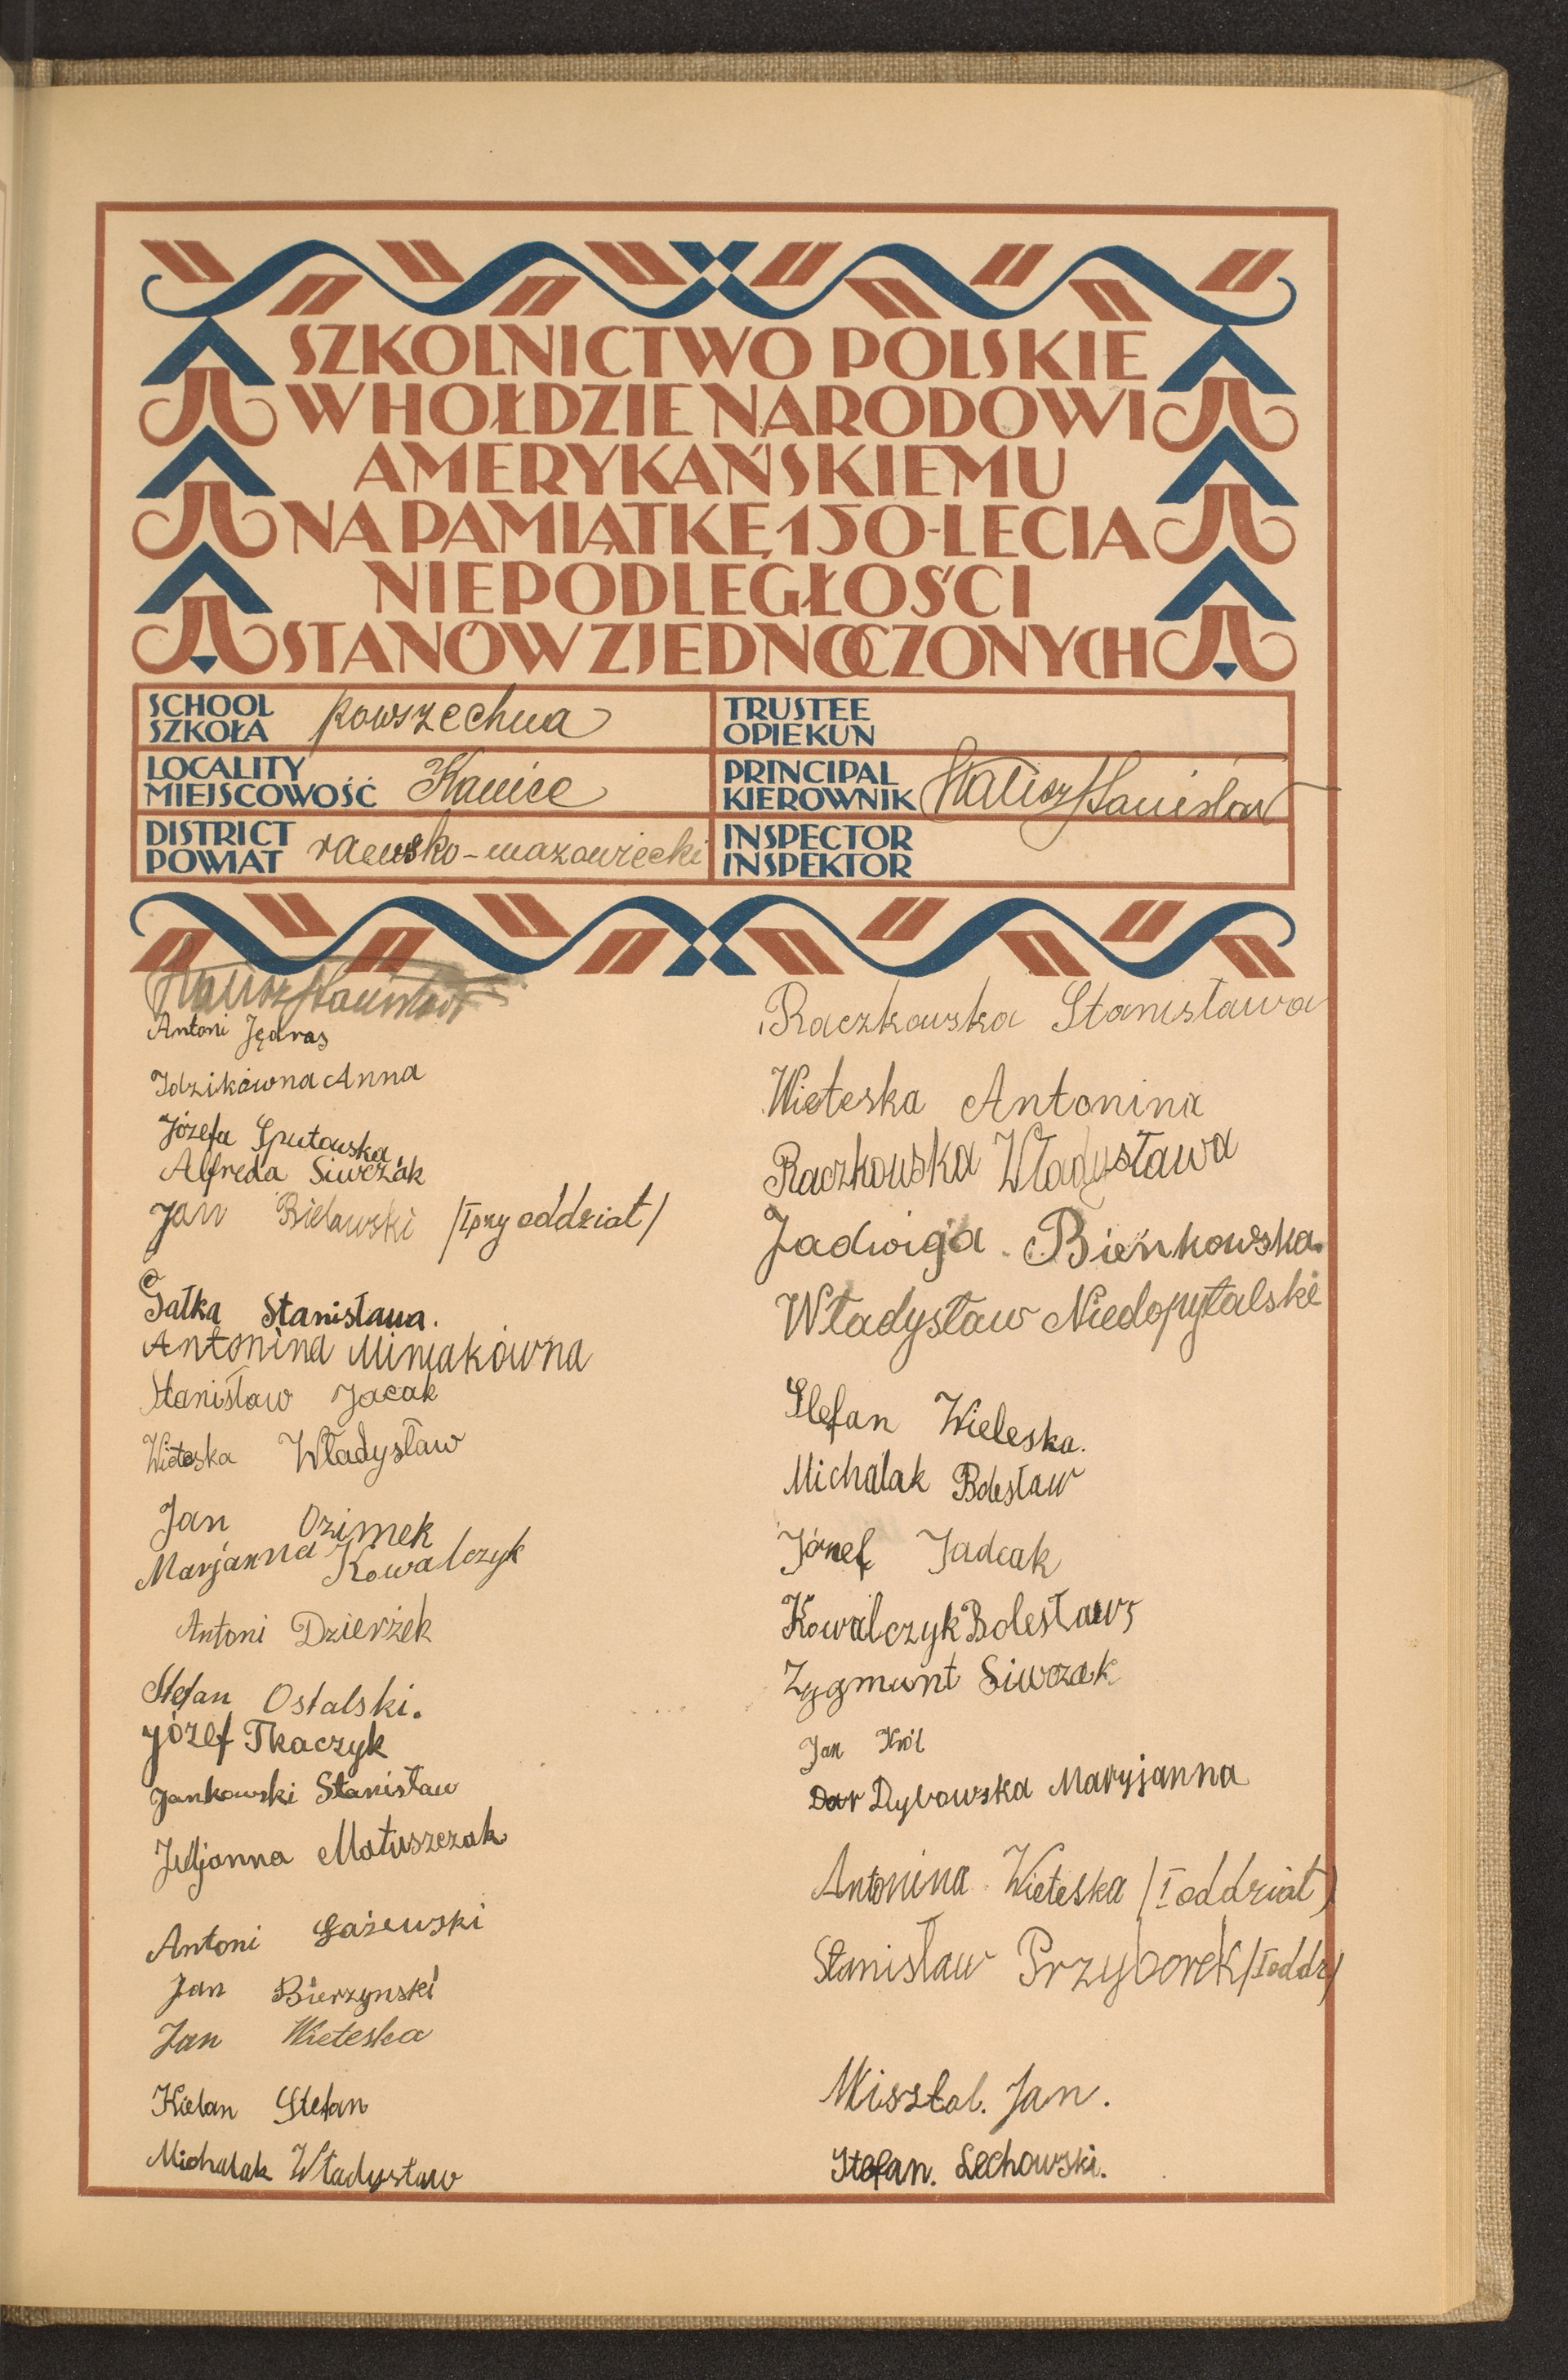 SZKOLNICTWO POLSKIE
W HOŁDZIE NARODOWI
AMERYKAŃSKIEMU
NA PAMIĄTKĘ 150-LECIA
NIEPODLEGŁOŚCI
STANÓW ZJEDNOCZONYCH
SCHOOL
SZKOŁA powszechna
TRUSTEE
OPIEKUN
LOCALITY
MIEJSCOWOŚĆ Kanice
PRINCIPAL
KIEROWNIK Stanisław
DISTRICT
POWIAT rawsko-mazowiecki
INSPECTOR
INSPEKTOR
Antoni Jędras
Idzikówna Anna
Józefa Sputowska
Alfreda Siwczak
Jan Bielawski /Iszy oddział/
Gałka Stanisława.
Antonina Miniakówna
Stanisław Jacak
Wieteska Władysław
Jan Ozimek
Marjanna Kowalczyk
Antoni Dzierżek
Stefan Ostalski.
Józef Tkaczyk
Jankowski Stanisław
Julljanna Matuszczak
Antoni Gażewski
Jan Bierzynski
Jan Wieteska
Kielan Stefan
Michalak Władysław
Raczkowska Stanisława
Wieteska Antonina
Raczkowska Władysława
Jadwiga Bieńkowska.
Władysław Niedopytalski
Stefan Wieteska.
Michalak Bolesław
Józef Jadcak
Kowalczyk Bolesław
Zygmunt Siwczak
Jan Król
Dybowska Maryjanna
Antonina Wieteska /I oddział/
Stanisław Przyborek /I oddz/
Misztal. Jan.
Stefan. Lechowski.